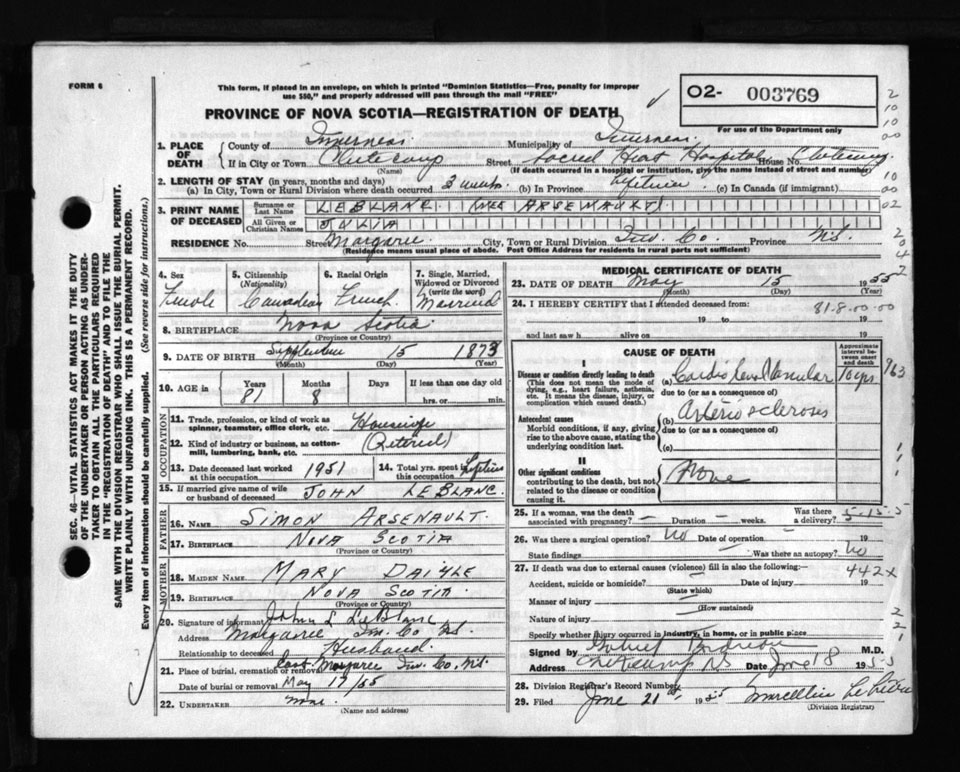 FORM 6
This form, if placed in an envelope, on which is printed "Dominion Statistics—Free, penalty for improper
use $50," and properly addressed will pass through the mail "FREE"
PROVINCE OF NOVA SCOTIA—REGISTRATION OF DEATH
O2- 003769
For use of the Department only
SEC. 46—VITAL STATISTICS ACT MAKES IT THE DUTY
OF THE UNDERTAKER OR PERSON ACTING AS UNDER-
TAKER TO OBTAIN ALL THE PARTICULARS REQUIRED
IN THE "REGISTRATION OF DEATH" AND TO FILE THE
SAME WITH THE DIVISION REGISTRAR WHO SHALL ISSUE THE BURIAL PERMIT.
WRITE PLAINLY WITH UNFADING INK. THIS IS A PERMANENT RECORD.
Every item of information should be carefully supplied. (See reverse side for instructions.)
1. PLACE OF DEATH County of Inverness Municipality of Inverness
If in City or Town (Name) Street Sacred Heart Hospital House No.
(If death occurred in a hospital or institution, give the name instead of street and number)
2. LENGTH OF STAY (in years, months and days)
(a) In City, Town or Rural Division where death occurred 3 weeks (b) In Province Lifetime (c) In Canada (if immigrant)
3. PRINT NAME OF DECEASED Surname or Last Name LEBLANC (NEE ARSENAULT)
All Given or Christian Names JULIA
RESIDENCE No. Street Margaree City, Town or Rural Division Inv. Co. Province N.S.
(Residence means usual place of abode. Post Office Address for residents in rural parts not sufficient)
4. Sex Female
5. Citizenship (Nationality) Canadian
6. Racial Origin French
7. Single, Married, Widowed or Divorced (write the word) Married
8. BIRTHPLACE Nova Scotia
(Province or Country)
9. DATE OF BIRTH September 15 1873
(Month) (Day) (Year)
10. AGE in Years 81 Months 8 Days If less than one day old hrs. or min.
OCCUPATION
11. Trade, profession, or kind of work as spinner, teamster, office clerk, etc. Housewife
12. Kind of industry or business, as cotton-mill, lumbering, bank, etc. (Retired)
13. Date deceased last worked at this occupation 1951 14. Total yrs. spent in this occupation Lifetime
15. If married give name of wife or husband of deceased JOHN LEBLANC
FATHER
16. NAME SIMON ARSENAULT
17. BIRTHPLACE NOVA SCOTIA
(Province or Country)
MOTHER
18. MAIDEN NAME MARY DAIGLE
19. BIRTHPLACE NOVA SCOTIA
(Province or Country)
20. Signature of informant John L LeBlanc
Address Margaree Inv. Co N.S.
Relationship to deceased Husband
21. Place of burial, cremation or removal East Margaree Inv. Co. N.S.
Date of burial or removal May 17/55
22. UNDERTAKER none
(Name and address)
MEDICAL CERTIFICATE OF DEATH
23. DATE OF DEATH May 15 1955
(Month) (Day) (Year)
24. I HEREBY CERTIFY that I attended deceased from: 81.8.00.00
19 to 19
and last saw h alive on 19
CAUSE OF DEATH
Approximate interval between onset and death
I
Disease or condition directly leading to death
(This does not mean the mode of dying, e.g., heart failure, asthenia, etc. It means the disease, injury, or complication which caused death.)
(a) Cardio renal Vascular 10 yrs
due to (or as a consequence of)
Antecedent causes
Morbid conditions, if any, giving rise to the above cause, stating the underlying condition last.
(b) Arterio sclerosis
due to (or as a consequence of)
(c)
II
Other significant conditions
contributing to the death, but not related to the disease or condition causing it.
None
25. If a woman, was the death associated with pregnancy? — Duration — weeks. Was there a delivery?
26. Was there a surgical operation? No Date of operation — 19
State findings — Was there an autopsy? No
27. If death was due to external causes (violence) fill in also the following:—
442X
Accident, suicide or homicide? Date of injury 19
(State which)
Manner of injury
(How sustained)
Nature of injury
Specify whether injury occurred in industry, in home, or in public place
Signed by M.D.
Address Cheticamp NS Date June 18 1955
28. Division Registrar's Record Number
29. Filed June 21st 1955
(Division Registrar)